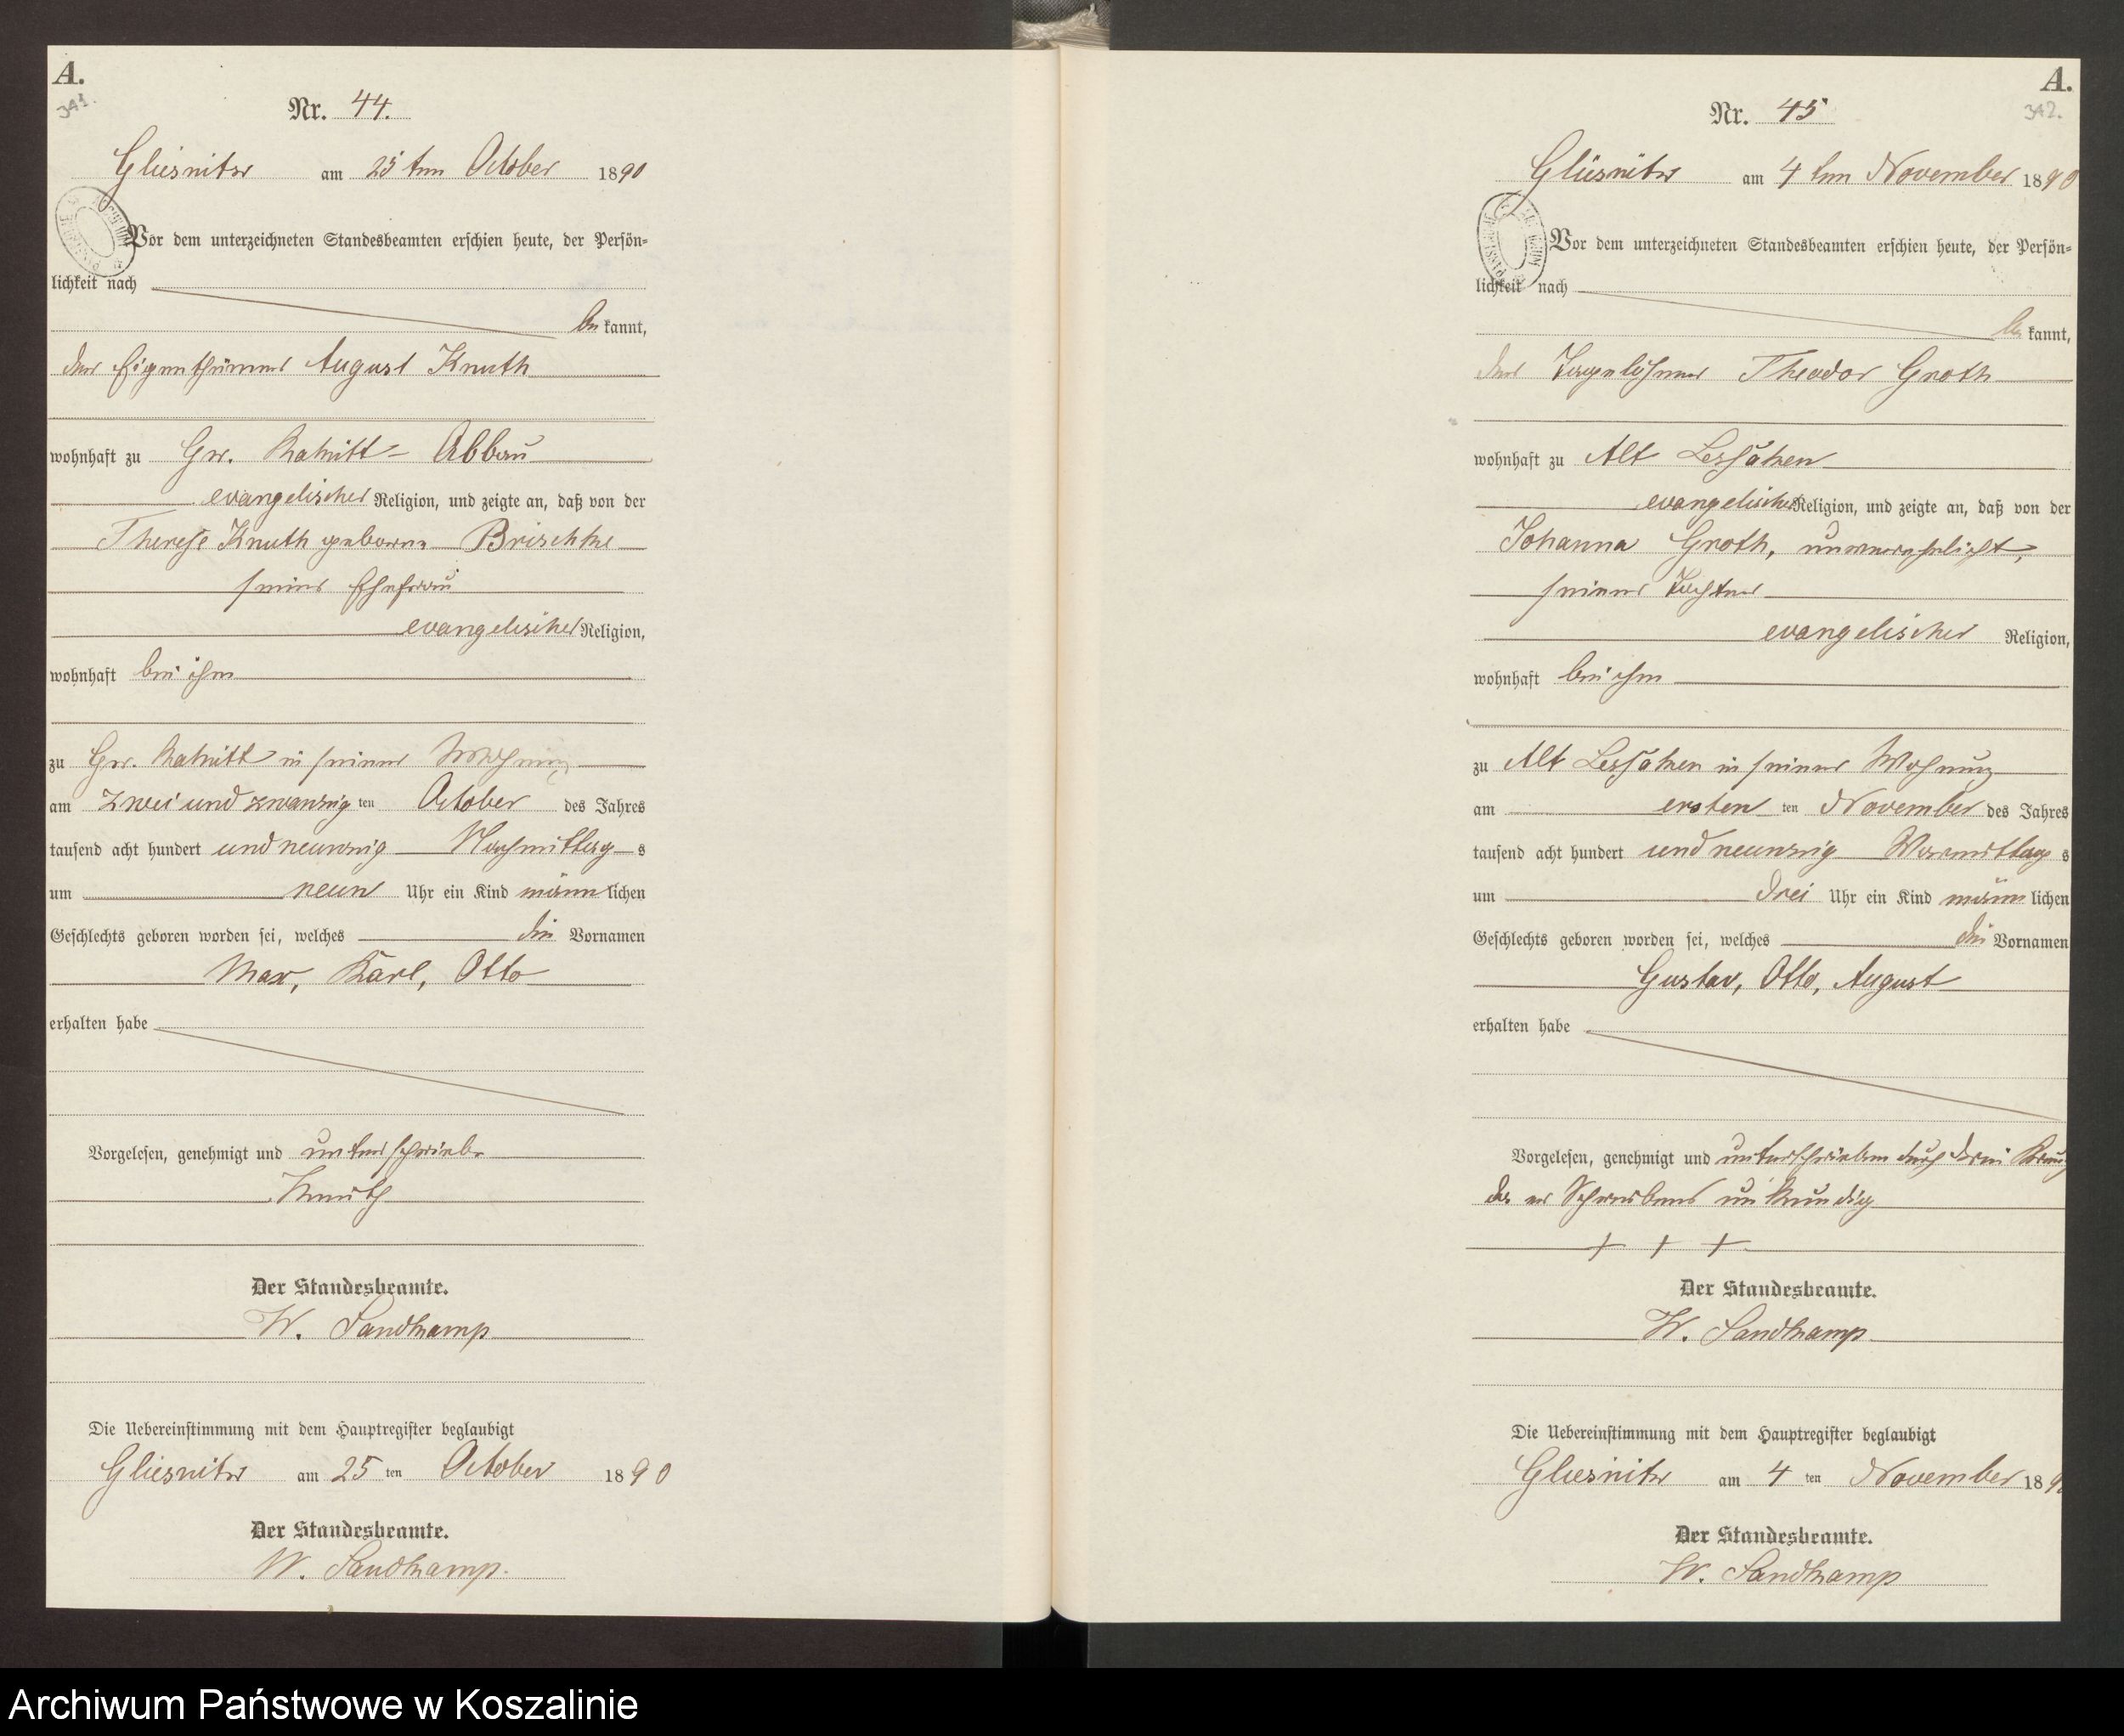 A.
341.
Nr. 44.
Gliesnitz am 25 ten October 1890
Vor dem unterzeichneten Standesbeamten erschien heute, der Persön-
lichkeit nach
be kannt,
der Eigenthümer August Knuth
wohnhaft zu Gr. Rakitt - Abbau
evangelischer Religion, und zeigte an, daß von der
Therese Knuth geborne Brischke
seiner Ehefrau
evangelischer Religion,
wohnhaft bei ihm
zu Gr. Rakitt in seiner Wohnung
am zwei und zwanzig ten October des Jahres
tausend acht hundert und neunzig Nachmittag s
um neun Uhr ein Kind männ lichen
Geschlechts geboren worden sei, welches die Vornamen
Max, Karl, Otto
erhalten habe
Vorgelesen, genehmigt und unterschrieben
Knuth
Der Standesbeamte.
W. Sandkamp
Die Uebereinstimmung mit dem Hauptregister beglaubigt
Gliesnitz am 25 ten October 1890
Der Standesbeamte.
W. Sandkamp.
A.
342.
Nr. 45
Gliesnitz am 4 ten November 1890
Vor dem unterzeichneten Standesbeamten erschien heute, der Persön-
lichkeit nach
be kannt,
der Tagelöhner Theodor Groth
wohnhaft zu Alt Lessaken
evangelischer Religion, und zeigte an, daß von der
Johanna Groth, unverehelicht,
seiner Tochter
evangelischer Religion,
wohnhaft bei ihm
zu Alt Lessaken in seiner Wohnung
am ersten ten November des Jahres
tausend acht hundert und neunzig Vormittag s
um drei Uhr ein Kind männ lichen
Geschlechts geboren worden sei, welches die Vornamen
Gustav, Otto, August
erhalten habe
Vorgelesen, genehmigt und unterschrieben durch drei Kreuz
da er Schreibens unkundig
+ + +
Der Standesbeamte.
W. Sandkamp
Die Uebereinstimmung mit dem Hauptregister beglaubigt
Gliesnitz am 4 ten November 189
Der Standesbeamte.
W. Sandkamp
Archiwum Państwowe w Koszalinie